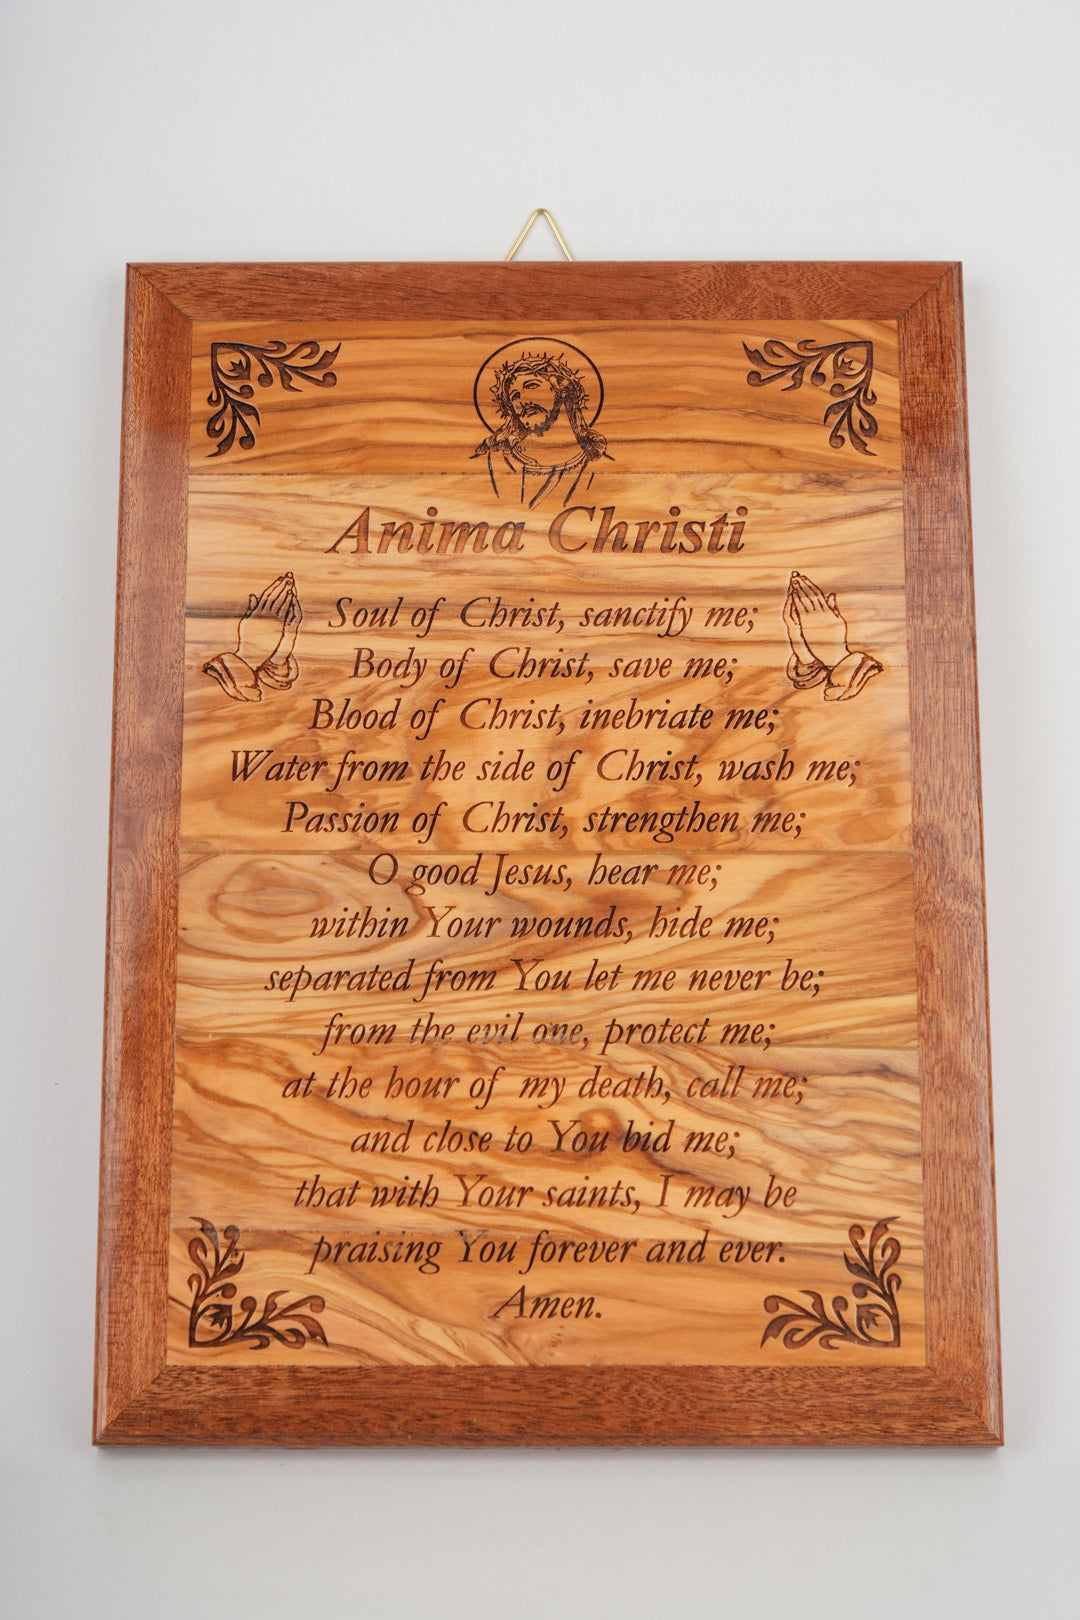 Anima Christi
Soul of Christ, sanctify me;
Body of Christ, save me;
Blood of Christ, inebriate me;
Water from the side of Christ, wash me;
Passion of Christ, strengthen me;
O good Jesus, hear me;
within Your wounds, hide me;
separated from You let me never be;
from the evil one, protect me;
at the hour of my death, call me;
and close to You bid me;
that with Your saints, I may be
praising You forever and ever.
Amen.